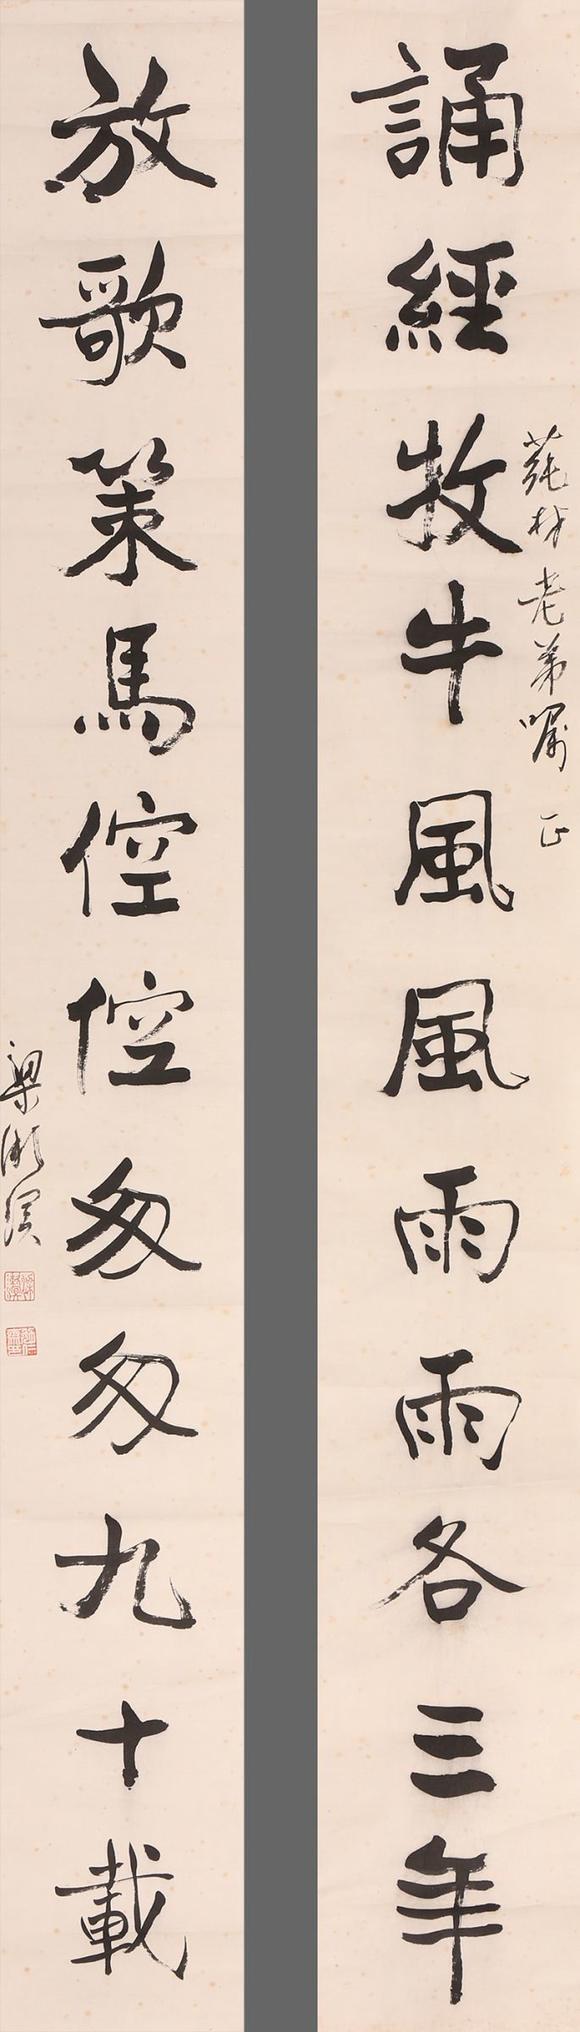 誦經牧牛風風雨雨各三年
莼林老弟嘱 正
放歌策馬倥倥匆匆九十載
梁漱溟